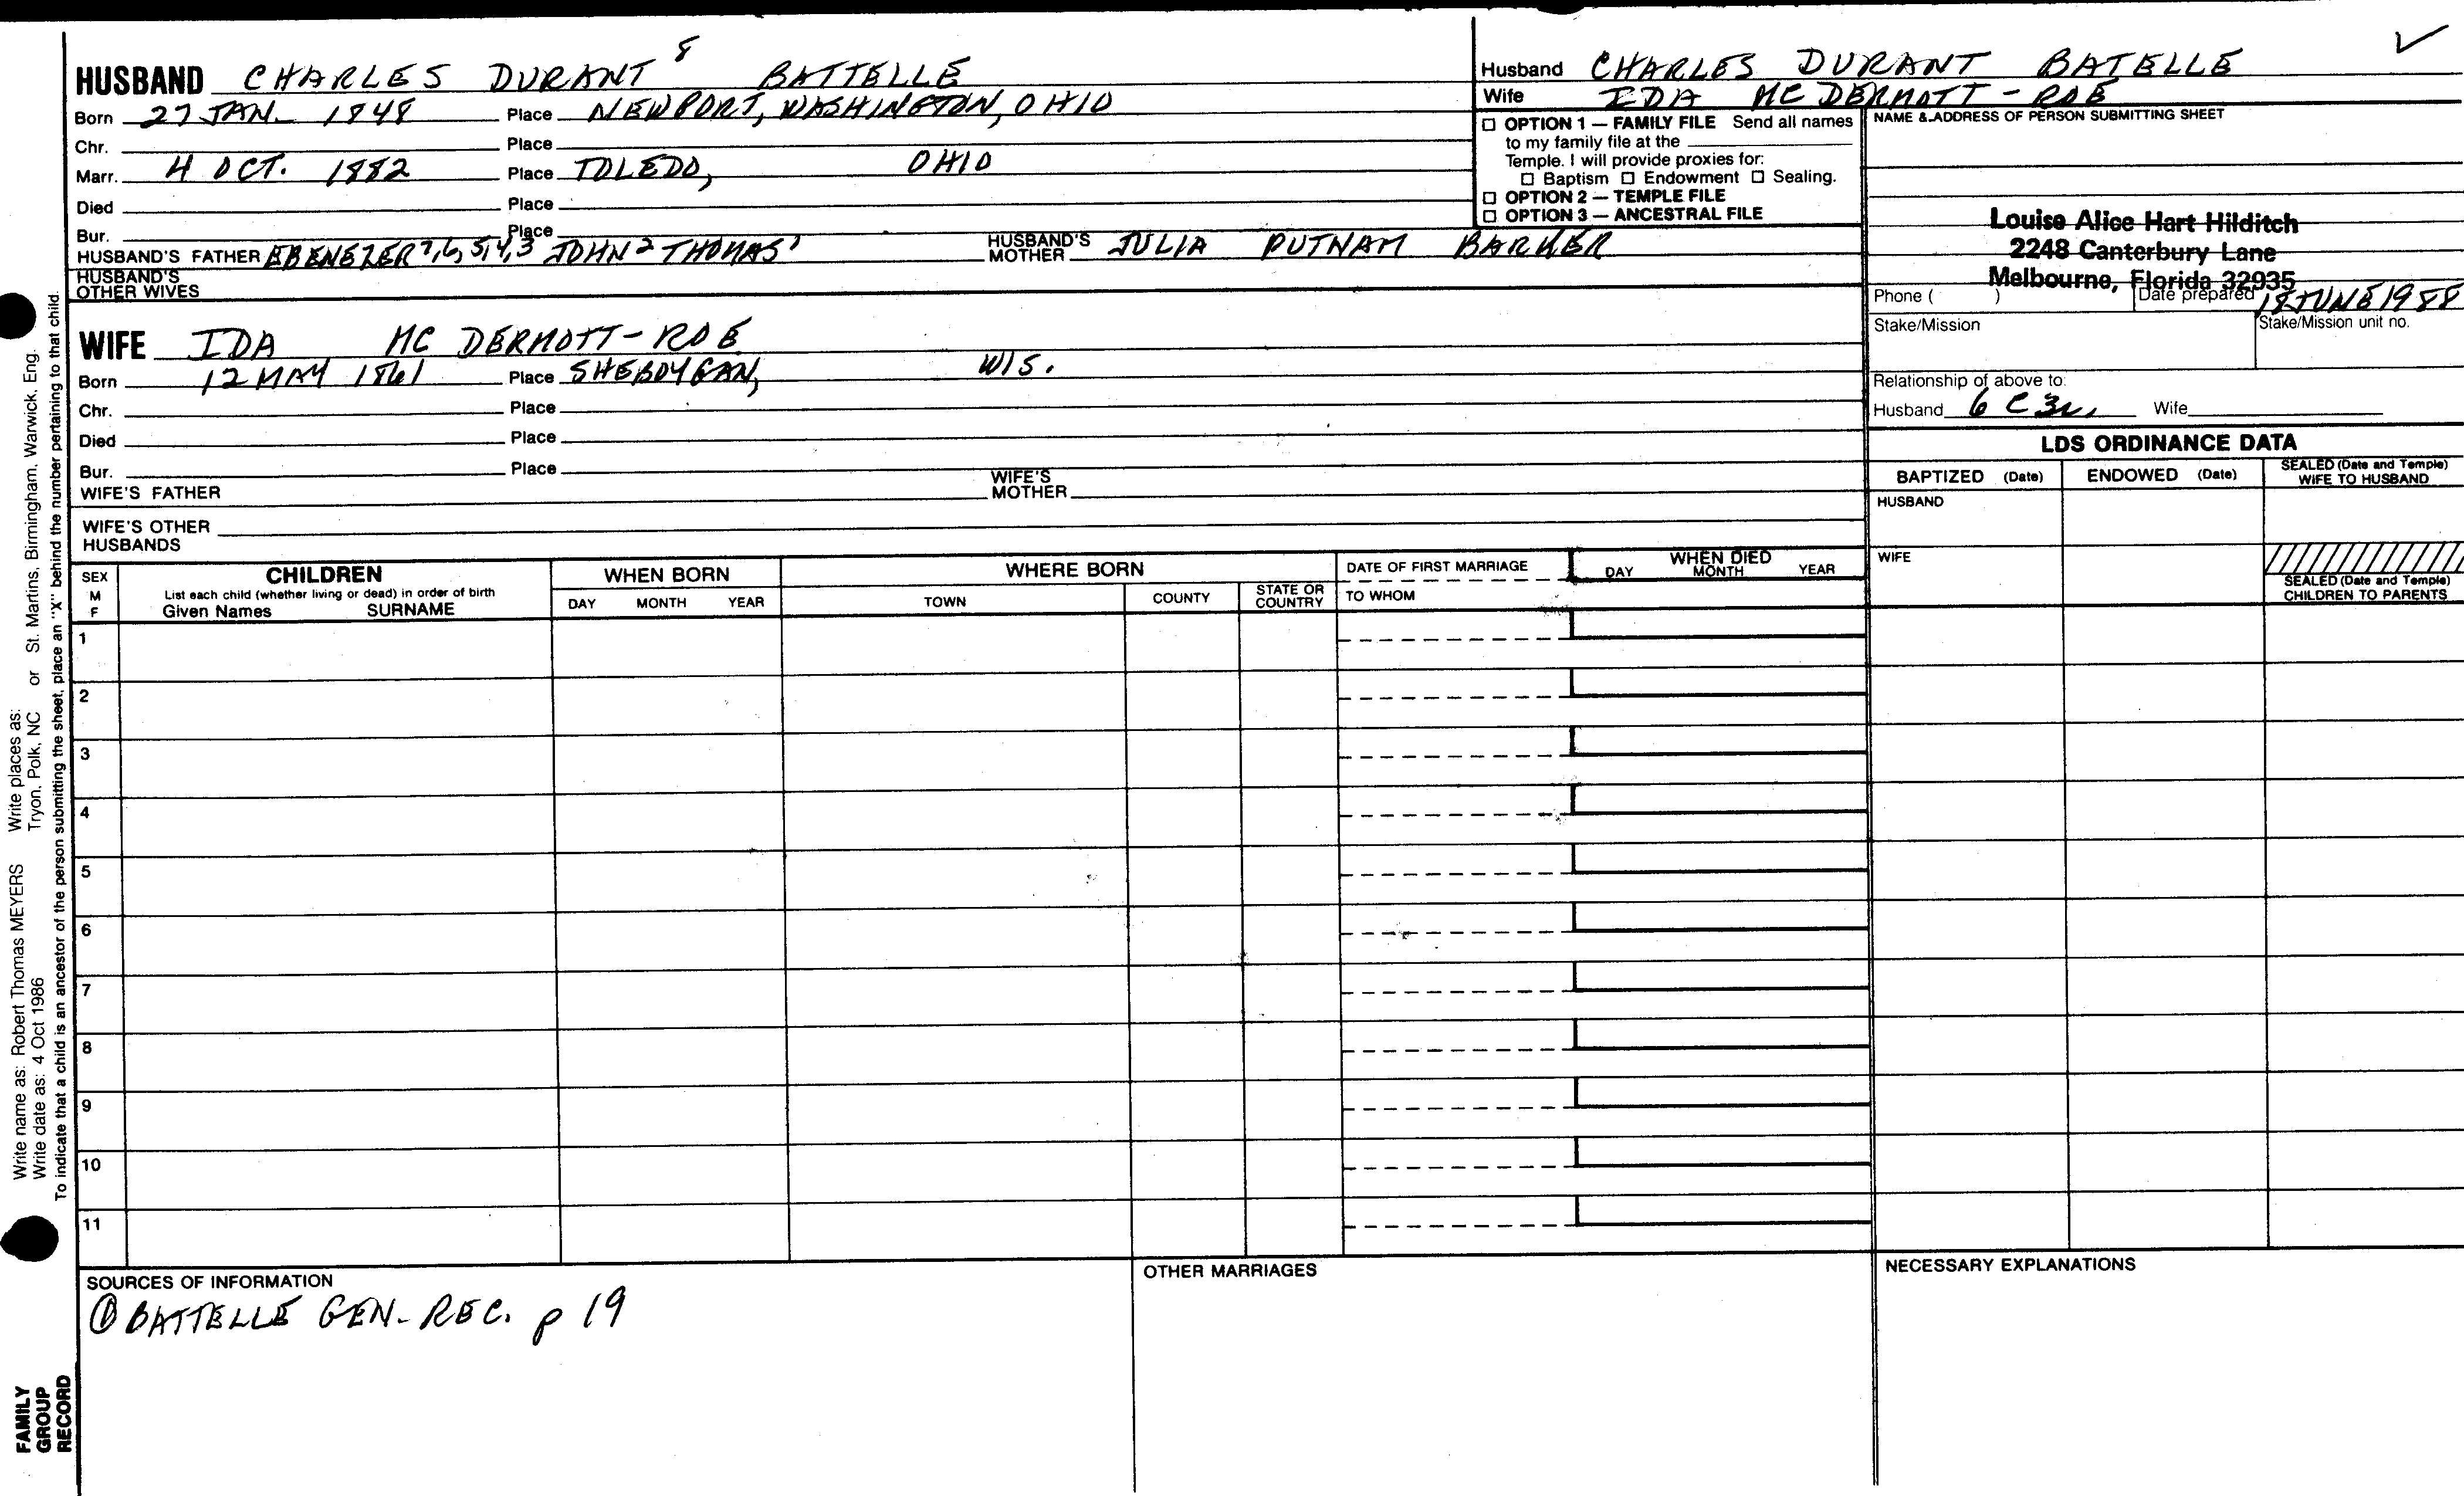 HUSBAND CHARLES DURANT 8 BATTELLE
Born 27 JAN. 1848 Place NEWPORT, WASHINGTON, OHIO
Chr. Place
Marr. 4 OCT. 1882 Place TOLEDO, OHIO
Died Place
Bur. Place
HUSBAND'S FATHER EBENEZER 7,6,5,4,3 JOHN 2 THOMAS 1 HUSBAND'S MOTHER JULIA PUTNAM BARKER
HUSBAND'S OTHER WIVES
WIFE IDA MC DERMOTT-ROE
Born 12 MAY 1861 Place SHEBOYGAN, WIS.
Chr. Place
Died Place
Bur. Place
WIFE'S FATHER WIFE'S MOTHER
WIFE'S OTHER HUSBANDS
Husband CHARLES DURANT BATELLE
Wife IDA MC DERMOTT-ROE
☐ OPTION 1 — FAMILY FILE Send all names
to my family file at the
Temple. I will provide proxies for:
☐ Baptism ☐ Endowment ☐ Sealing.
☐ OPTION 2 — TEMPLE FILE
☐ OPTION 3 — ANCESTRAL FILE
NAME & ADDRESS OF PERSON SUBMITTING SHEET
Louise Alice Hart Hilditch
2248 Canterbury Lane
Melbourne, Florida 32935
Phone ( ) Date prepared 18 JUNE 1988
Stake/Mission Stake/Mission unit no.
Relationship of above to:
Husband 6 C 3r, Wife
LDS ORDINANCE DATA
BAPTIZED (Date) ENDOWED (Date) SEALED (Date and Temple) WIFE TO HUSBAND
HUSBAND
WIFE
SEALED (Date and Temple)
CHILDREN TO PARENTS
SEX M F
CHILDREN
List each child (whether living or dead) in order of birth
Given Names SURNAME
WHEN BORN
DAY MONTH YEAR
WHERE BORN
TOWN COUNTY STATE OR COUNTRY
DATE OF FIRST MARRIAGE
TO WHOM
WHEN DIED
DAY MONTH YEAR
1
2
3
4
5
6
7
8
9
10
11
SOURCES OF INFORMATION
① BATTELLE GEN. REC. p 19
OTHER MARRIAGES
NECESSARY EXPLANATIONS
Write name as: Robert Thomas MEYERS Write places as:
Write date as: 4 Oct 1986 Tryon, Polk, NC or St. Martins, Birmingham, Warwick, Eng.
To indicate that a child is an ancestor of the person submitting the sheet, place an "X" behind the number pertaining to that child.
FAMILY
GROUP
RECORD